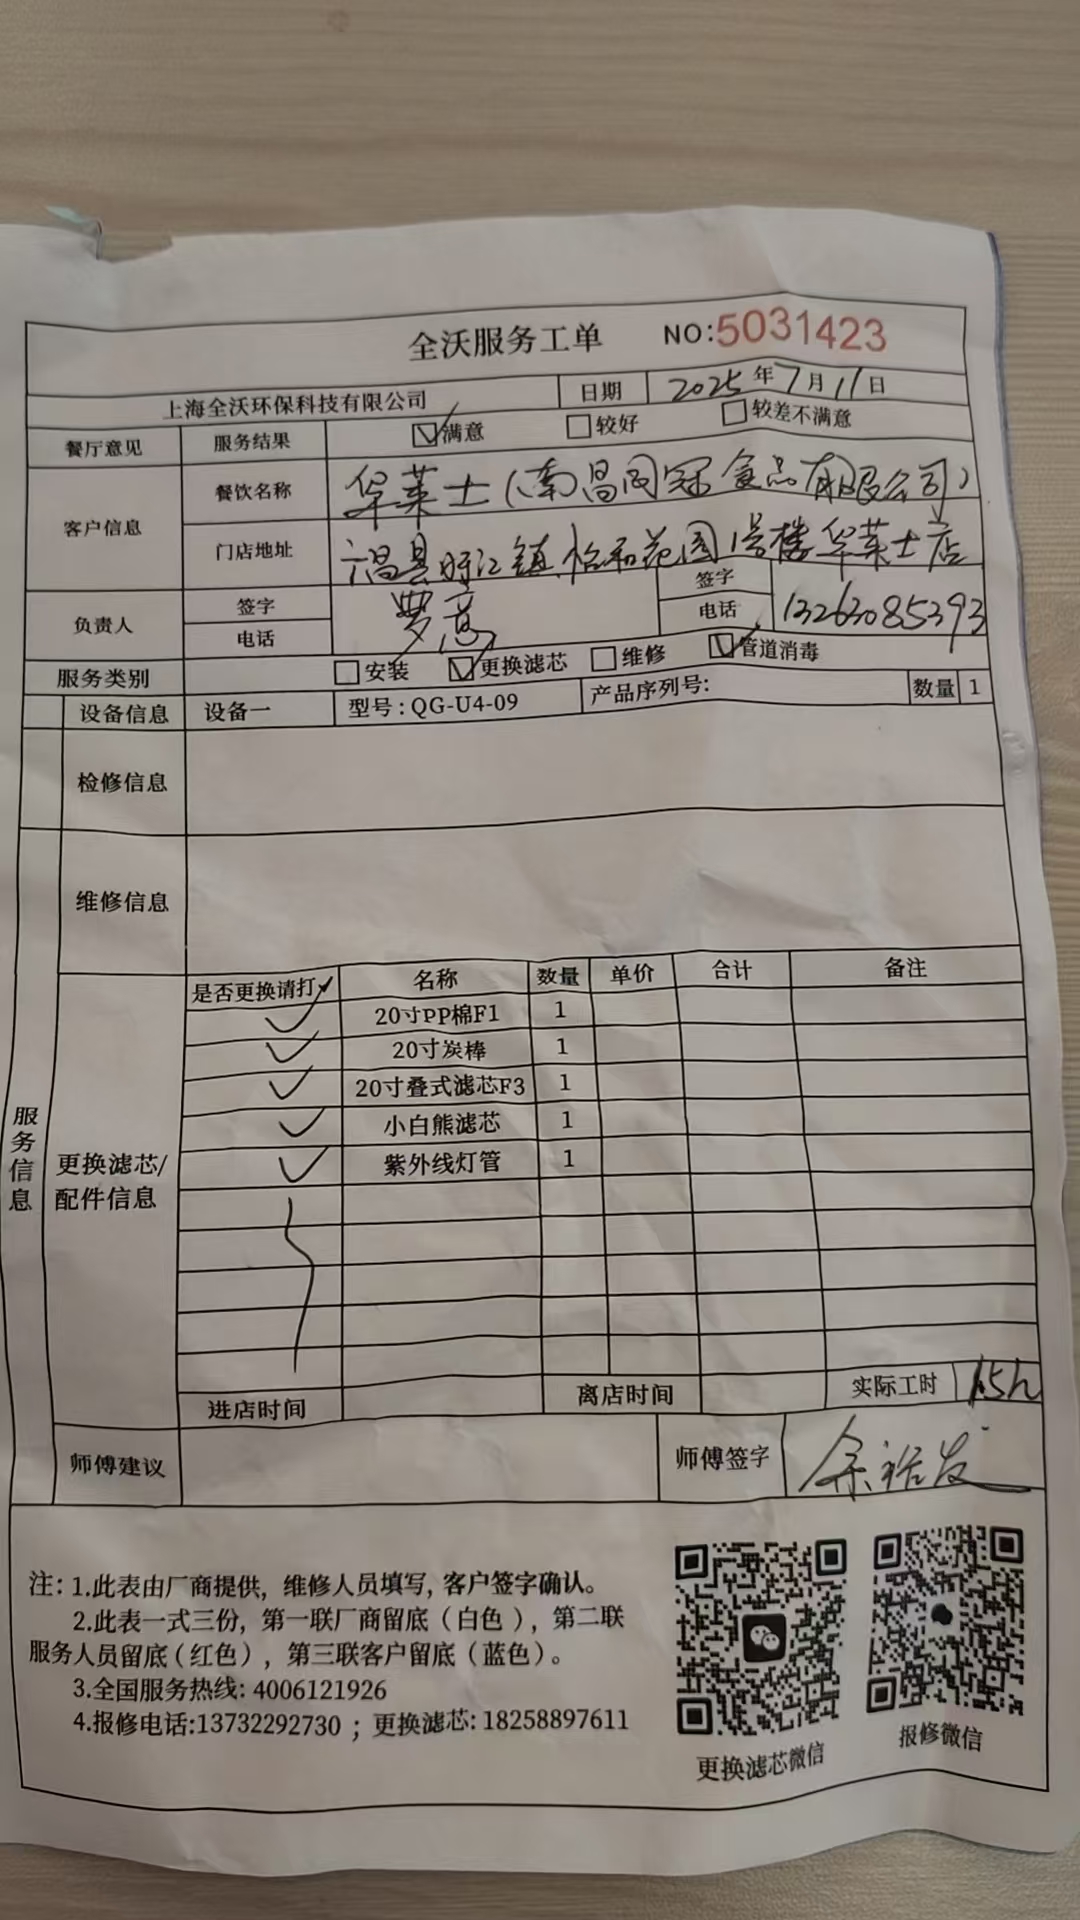 全沃服务工单 NO:5031423
上海全沃环保科技有限公司 日期 2025年7月11日
餐厅意见 服务结果 满意 较好 较差不满意
客户信息 餐饮名称 华莱士(南昌冈冠食品有限公司)
门店地址 昌县 江镇怡和花园1号楼华莱士店
负责人 签字 电话 罗 签字 电话 13263085393
服务类别 安装 更换滤芯 维修 管道消毒
设备信息 设备一 型号:QG-U4-09 产品序列号: 数量 1
检修信息
维修信息
服务信息
更换滤芯/配件信息
是否更换请打✓ 名称 数量 单价 合计 备注
✓ 20寸PP棉F1 1
✓ 20寸炭棒 1
✓ 20寸叠式滤芯F3 1
✓ 小白熊滤芯 1
✓ 紫外线灯管 1
进店时间 离店时间 实际工时 1.5h
师傅建议 师傅签字 余裕发
注:1.此表由厂商提供,维修人员填写,客户签字确认。
2.此表一式三份,第一联厂商留底(白色),第二联
服务人员留底(红色),第三联客户留底(蓝色)。
3.全国服务热线:4006121926
4.报修电话:13732292730;更换滤芯:18258897611
更换滤芯微信 报修微信